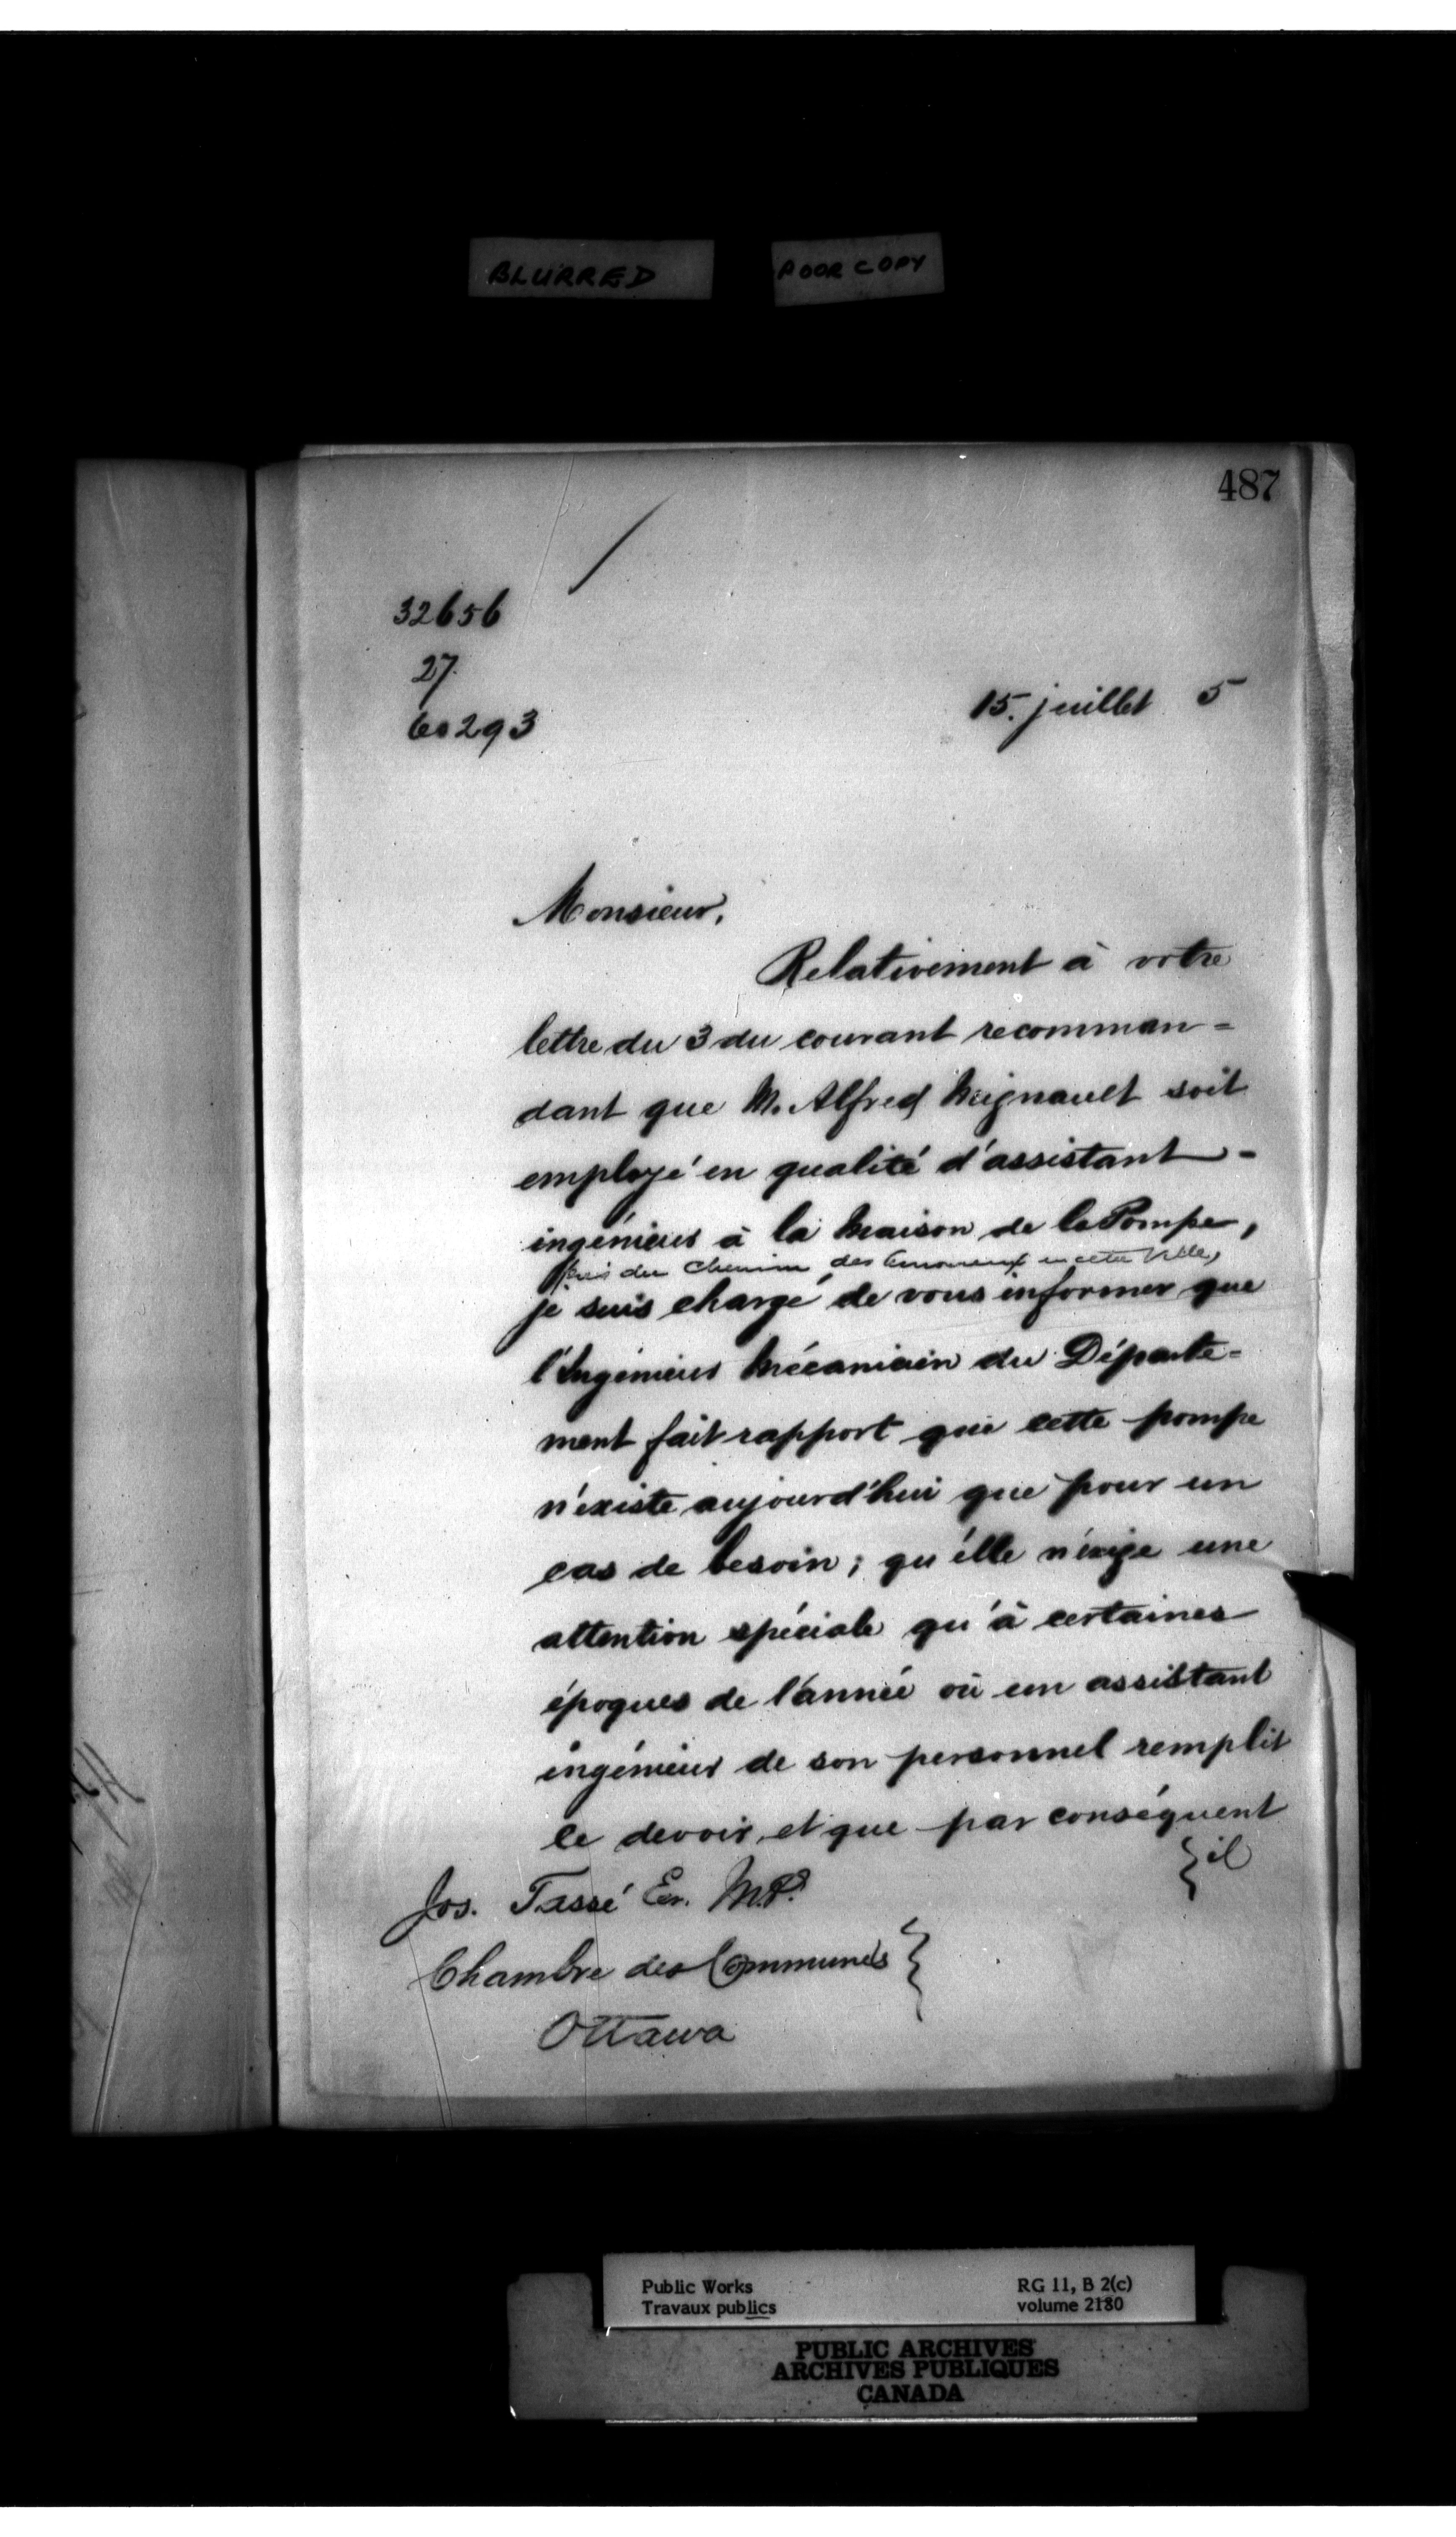 BLURRED
POOR COPY
487
32656
27.
60293
15. juillet 5
Monsieur,
Relativement à votre
lettre du 3 du courant recomman=
dant que M. Alfred Mignault soit
employé en qualité d'assistant-
ingénieur à la Maison de la Pompe,
près du Chemin des Amoureux en cette Ville,
je suis chargé de vous informer que
l'Ingénieur Mécanicien du Départe=
ment fait rapport que cette pompe
n'existe aujourd'hui que pour un
cas de besoin; qu'elle n'exige une
attention spéciale qu'à certaines
époques de l'année où un assistant
ingénieur de son personnel remplit
le devoir, et que par conséquent
il
Jos. Tassé Er. M.P.
Chambre des Communes
Ottawa
Public Works
Travaux publics
RG 11, B 2(c)
volume 2180
PUBLIC ARCHIVES
ARCHIVES PUBLIQUES
CANADA